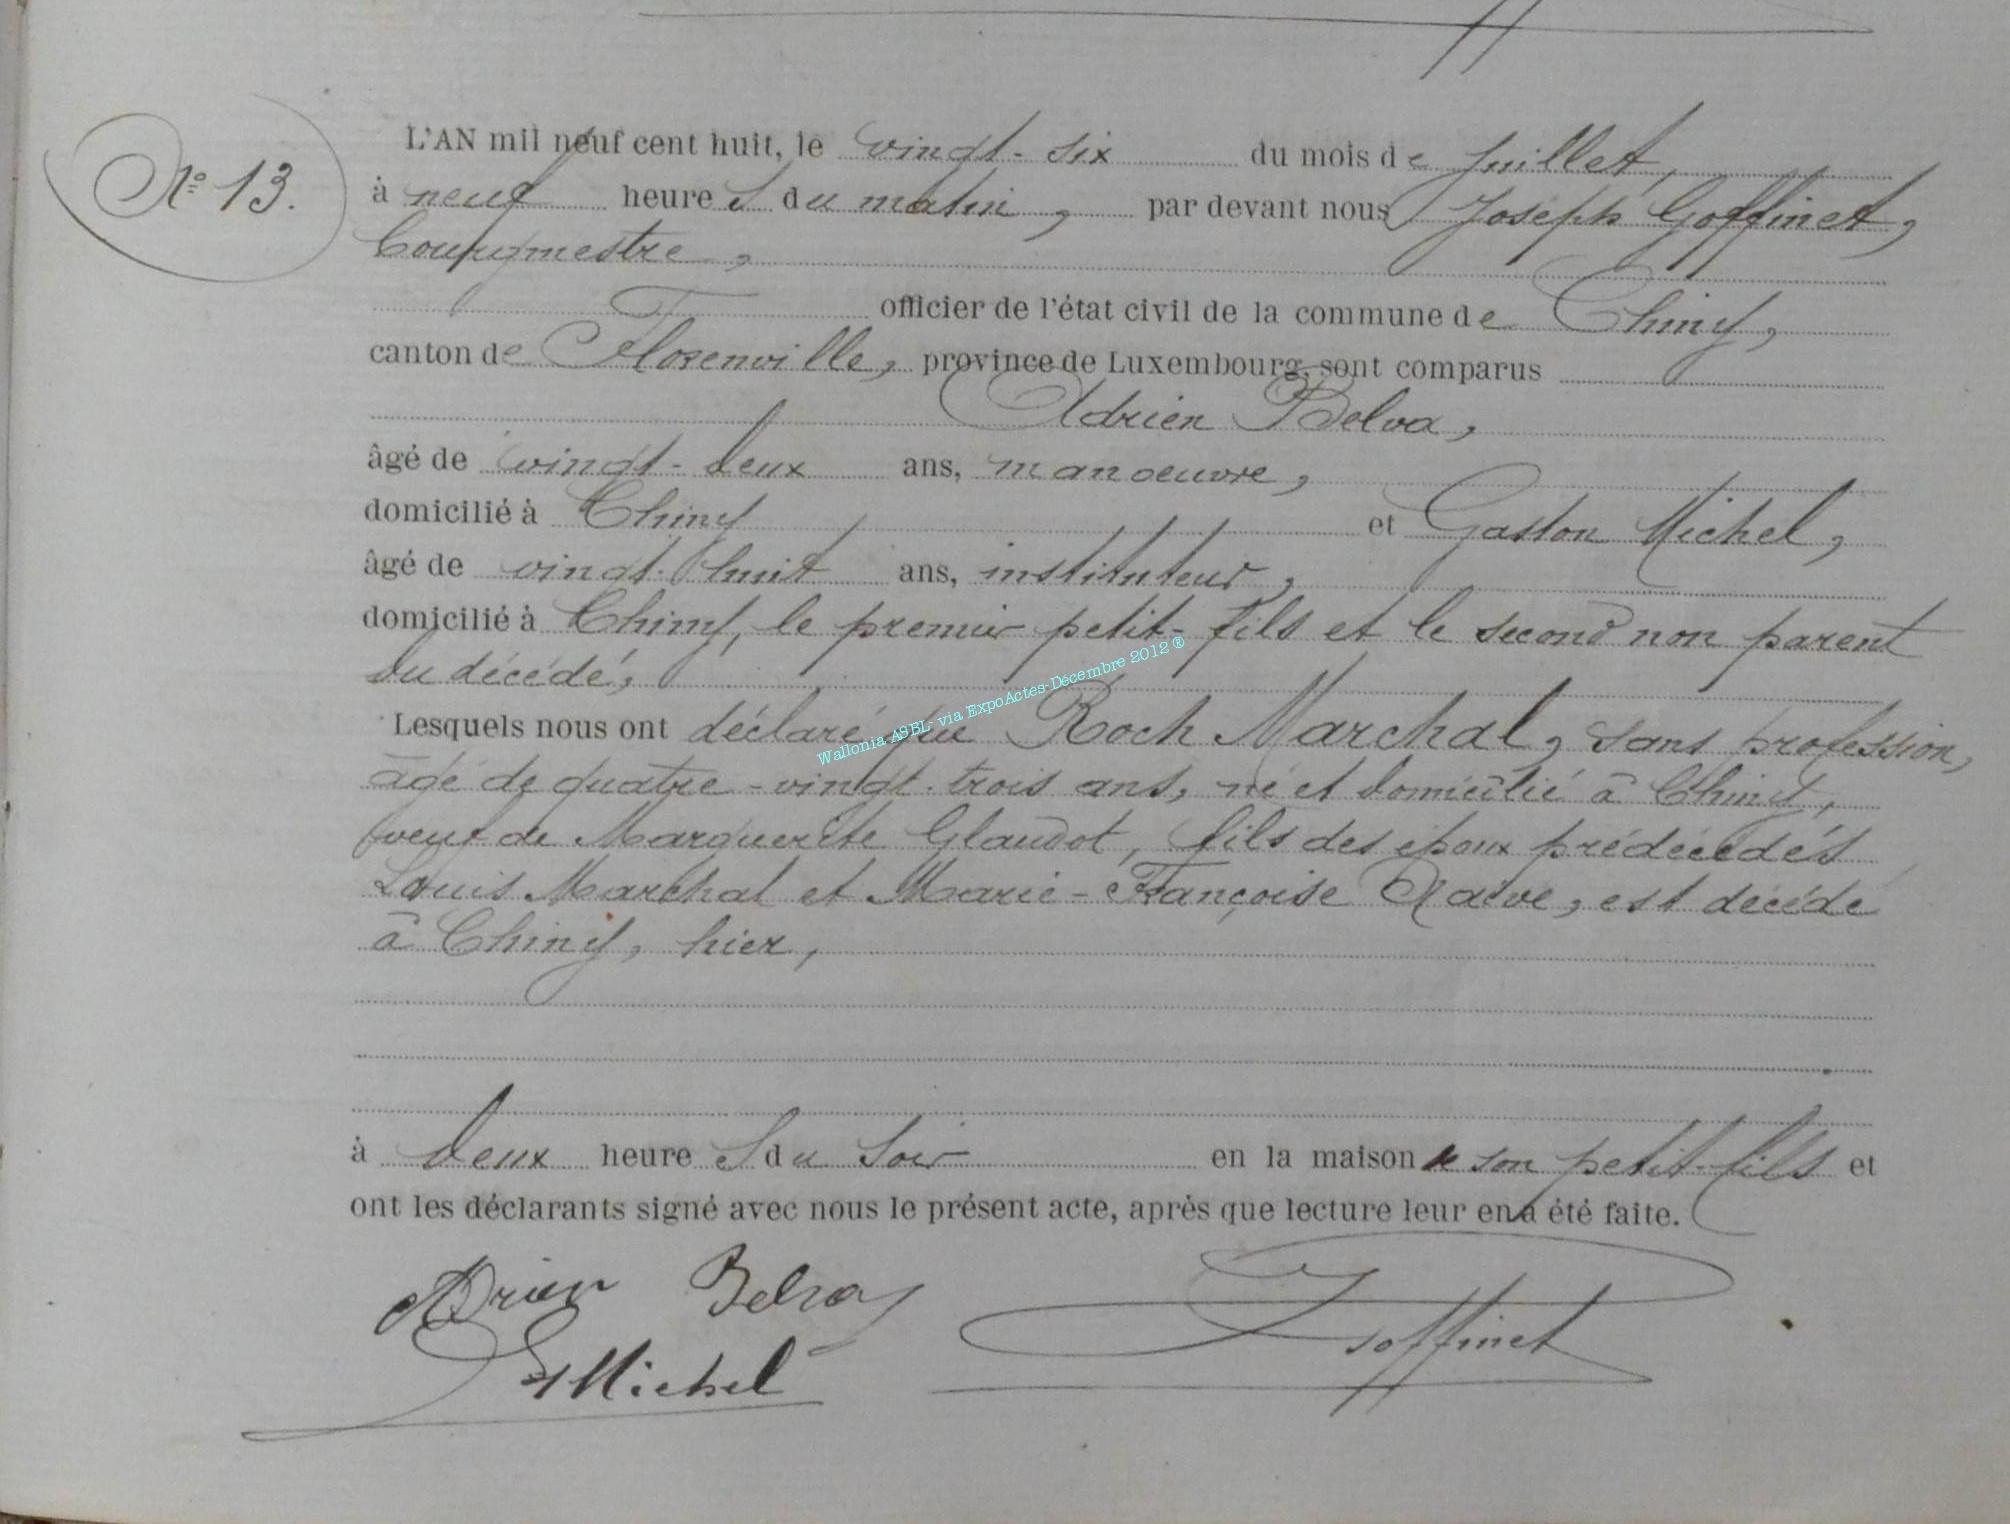 N° 13.
L'AN mil neuf cent huit, le vingt-six du mois de Juillet,
à neuf heures du matin, par devant nous Joseph Goffinet,
bourgmestre,
officier de l'état civil de la commune de Chiny,
canton de Florenville, province de Luxembourg, sont comparus
Adrien Belva,
âgé de vingt-deux ans, manoeuvre,
domicilié à Chiny et Gaston Michel,
âgé de vingt-huit ans, instituteur,
domicilié à Chiny, le premier petit-fils et le second non parent
du décédé,
Lesquels nous ont déclaré que Roch Marchal, sans profession,
âgé de quatre-vingt-trois ans, né et domicilié à Chiny,
veuf de Marguerite Glaudot, fils des époux prédécédés
Louis Marchal et Marie-Françoise est décédé
à Chiny, hier,
à deux heures du soir en la maison de son petit-fils et
ont les déclarants signé avec nous le présent acte, après que lecture leur en a été faite.
Adrien Belva
Goffinet
GMichel
Wallonia ASBL- via ExpoActes-Décembre 2012 ®